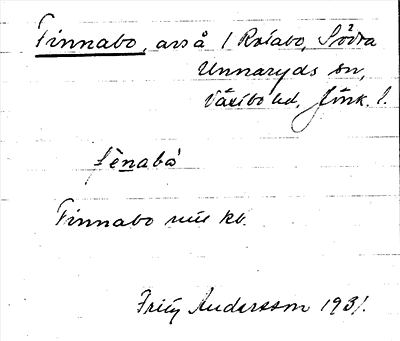 Finnabo, avs å / Rotabo, Södra
Unnaryds sn,
Västbo hd, Jönk. l.
fènabò
Finnabo mtl kb.
Fritz Andersson 1931.